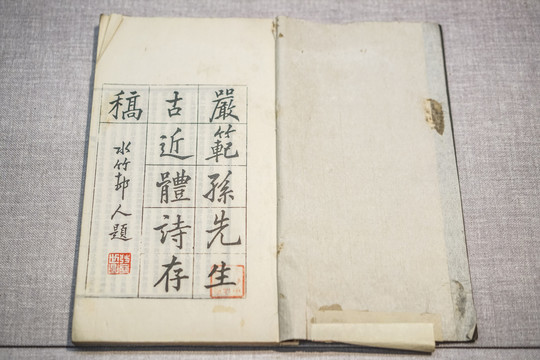 嚴範孫先生
古近體詩存
稿
水竹邨人題